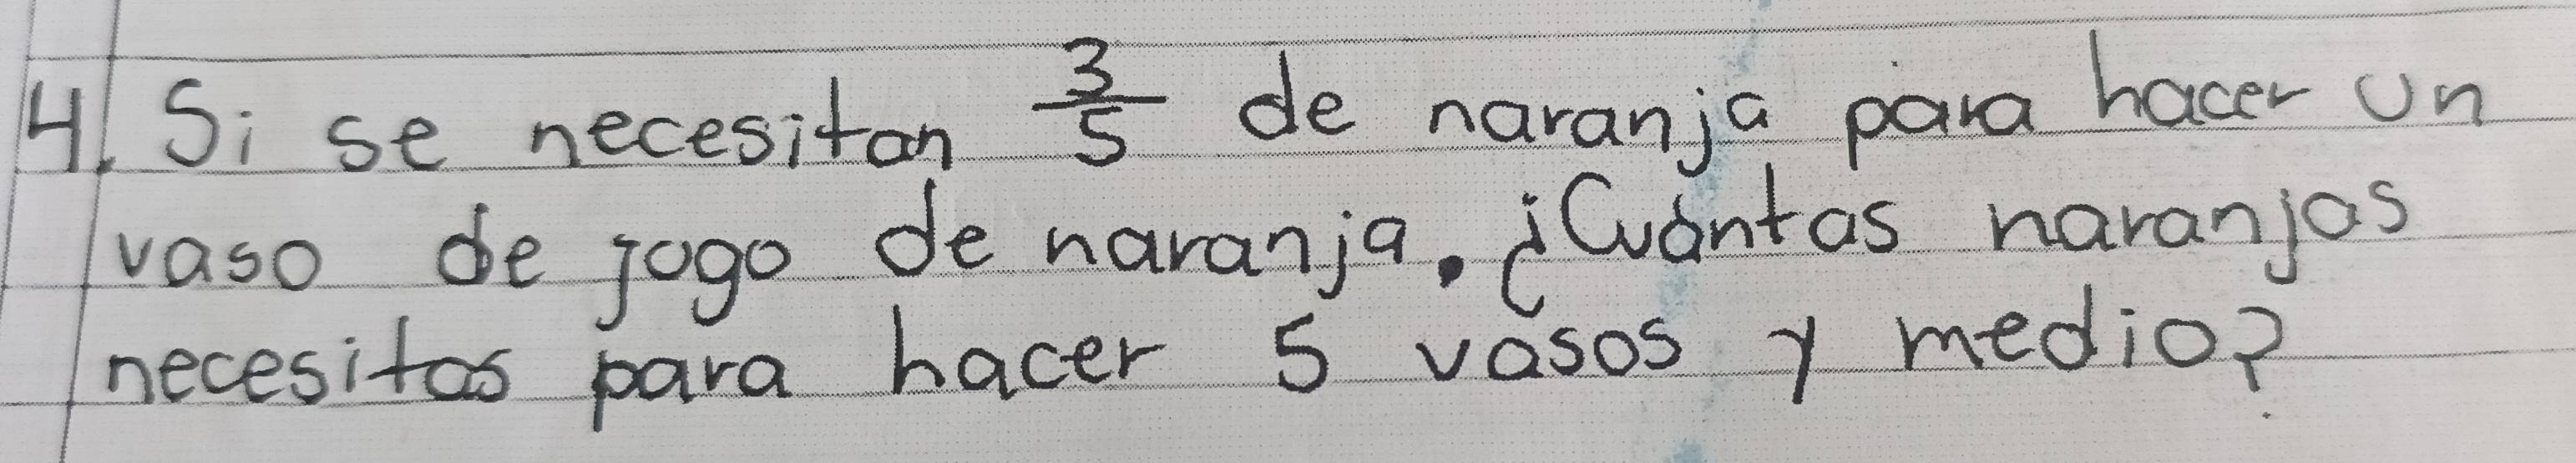 4. Si se necesitan 3/5 de naranja para hacer un
vaso de jogo de naranja. ¿Cuántas naranjas
necesitas para hacer 5 vasos y medio?